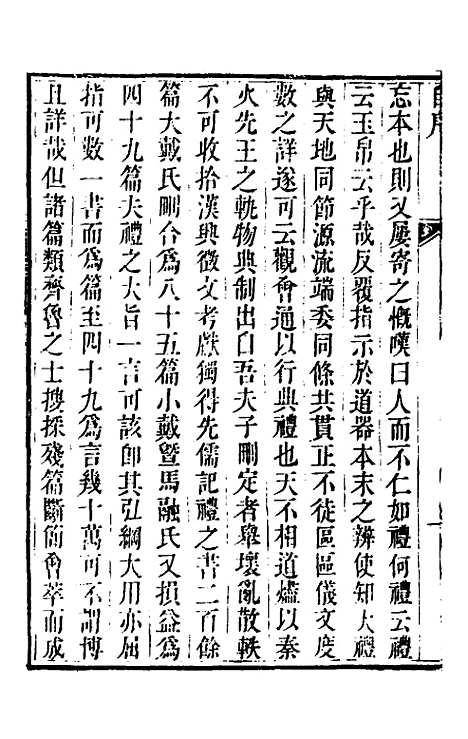 忘本也則又屢寄之慨嘆曰人而不仁如禮何禮云禮
云玉帛云乎哉反覆指示於道器本末之辨使知大禮
與天地同節源流端委同條共貫正不徒區區儀文度
數之詳遂可云觀會通以行典禮也天不相道燼以秦
火先王之軌物典制出自吾夫子刪定者舉壞亂散軼
不可收拾漢興徵文考獻獨得先儒記禮之書二百餘
篇大戴氏刪合為八十五篇小戴暨馬融氏又損益為
四十九篇夫禮之大旨一言可該即其弘綱大用亦屈
指可數一書而為篇至四十九為言幾十萬可不謂博
且詳哉但諸篇類齊魯之士搜採殘篇斷簡會萃而成